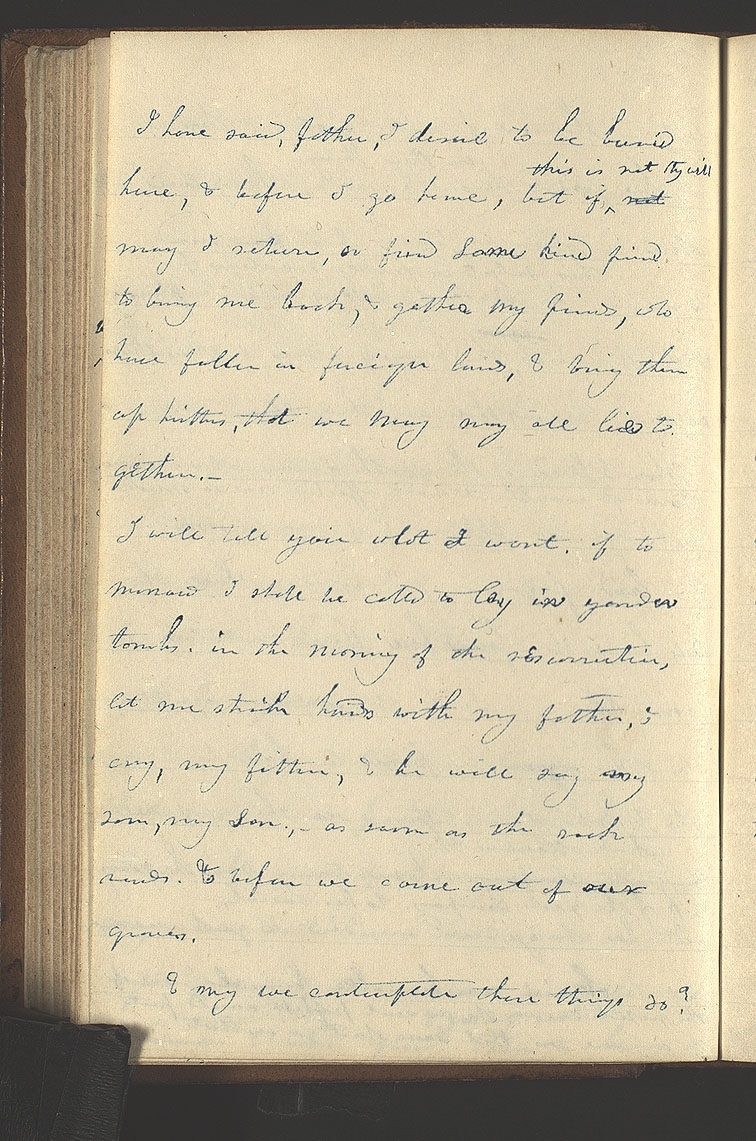 I have said, father, I desire to be buried
this is not thy will
here, & before I go home, but if ^ not
may I return, or find some kind friend
to bring me back, & gather my friends, who
have fallen in foreign lands, & bring them
up hither, that we may may all lie to
gether.—
I will tell you what I want. if to
morrow I shall be called to lay in yonder
tombs. in the morning of the resurrection,
let me strike hands with my father, &
cry, my father, & he will say my
son, my son,— as soon as the rock
rends. & before we come out of our
graves.
& may we contemplate these things so?